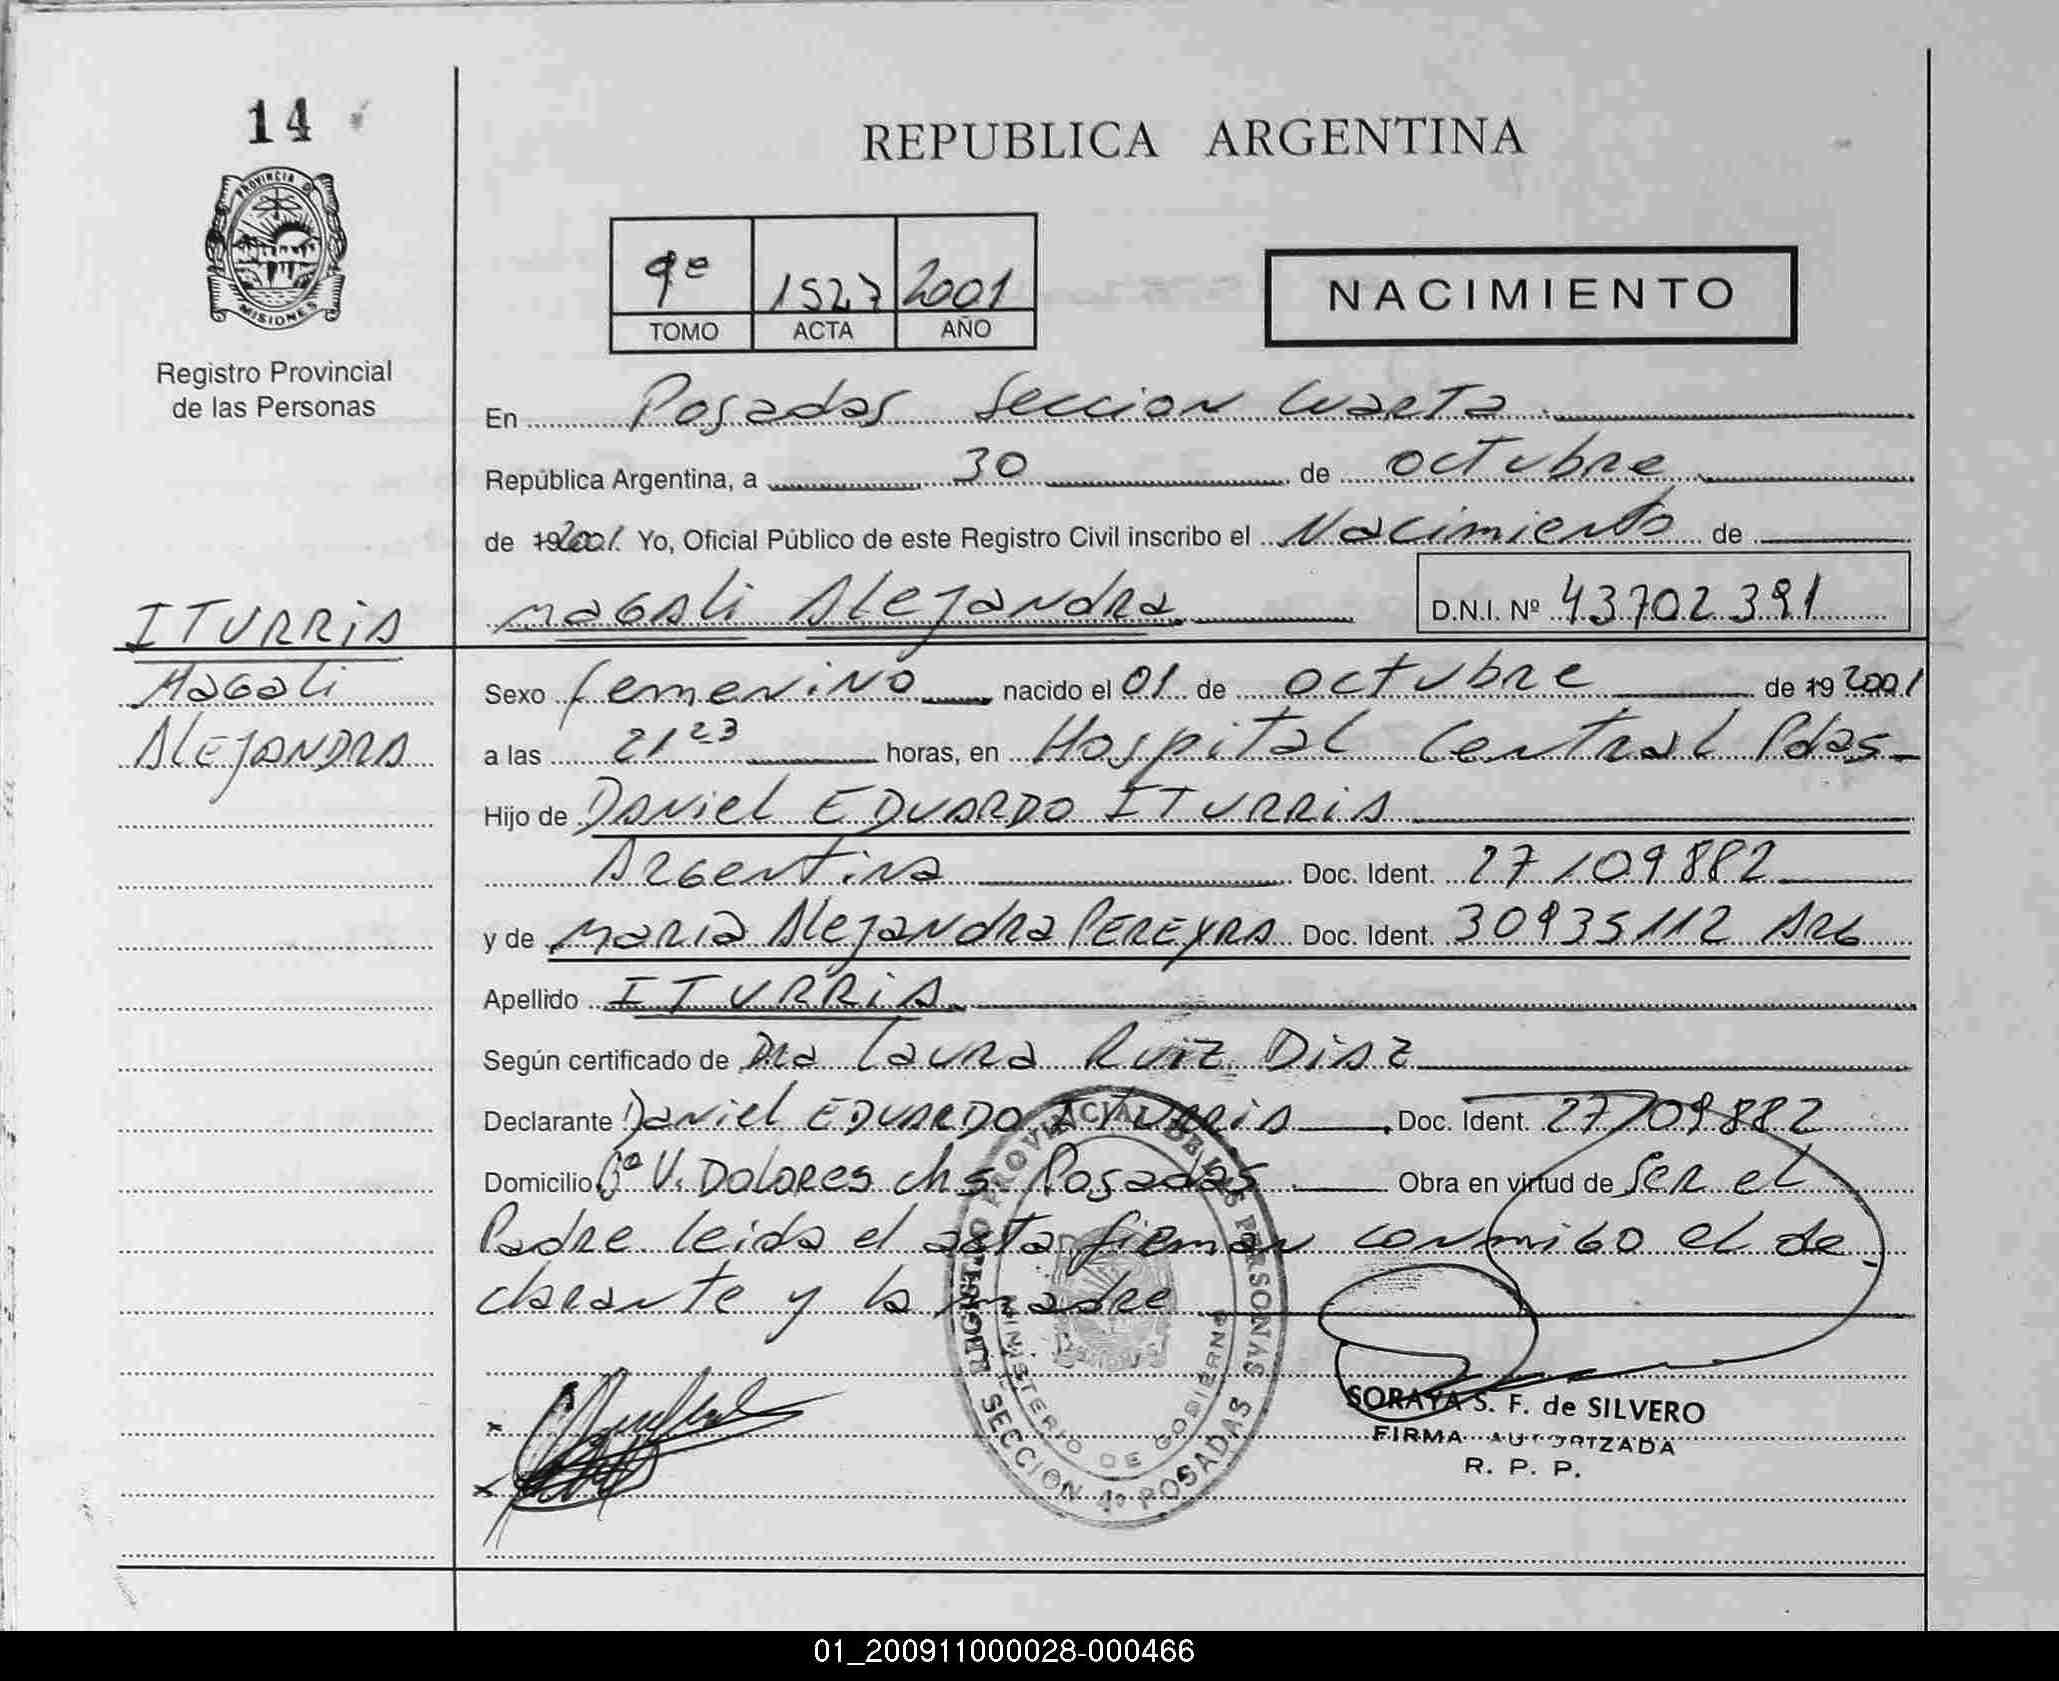 14
PROVINCIA DE
MISIONES
Registro Provincial
de las Personas
REPUBLICA ARGENTINA
9º 1527 2001
TOMO ACTA AÑO
NACIMIENTO
En Posadas Seccion Cuarta
República Argentina, a 30 de octubre
de 19 2001. Yo, Oficial Público de este Registro Civil inscribo el Nacimiento de
Magali Alejandra D.N.I. Nº 43702391
ITURRIA
Magali
Alejandra
Sexo femenino nacido el 01 de octubre de 19 2001
a las 21 23 horas, en Hospital Central Pdas
Hijo de Daniel EDUARDO ITURRIA
Argentina Doc. Ident. 27109882
y de Maria Alejandra PEREYRA Doc. Ident. 30935112 ARG
Apellido ITURRIA
Según certificado de Dra Laura Ruiz Diaz
Declarante Daniel EDUARDO ITURRIA Doc. Ident. 27109882
Domicilio Bº V. Dolores ch s Posadas Obra en virtud de Ser el
Padre leida el acta firman conmigo el de
clarante y la madre
REGISTRO PROVINCIAL DE LAS PERSONAS
MINISTERIO DE GOBIERNO
SECCION 4º POSADAS
SORAYA S. F. de SILVERO
FIRMA AUTORIZADA
R. P. P.
01_200911000028-000466